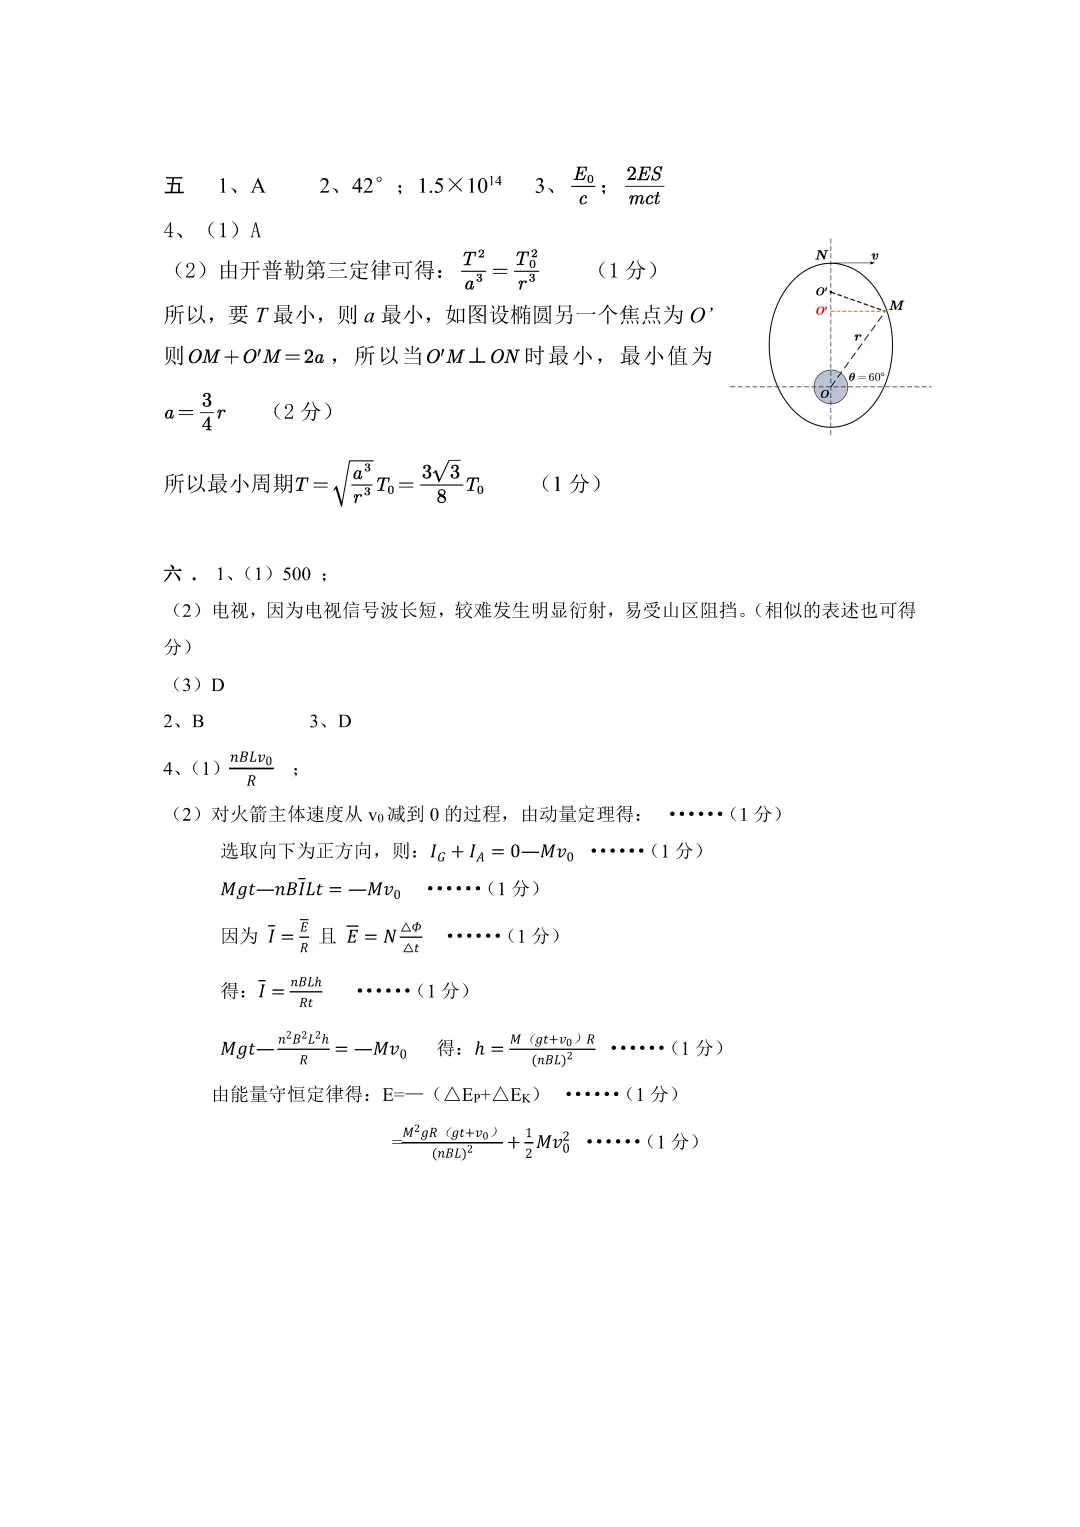 五 1、A 2、42°；1.5×10¹⁴ 3、E₀/c；2ES/mct
4、（1）A
（2）由开普勒第三定律可得：T²/a³＝T₀²/r³ （1 分）
所以，要 T 最小，则 a 最小，如图设椭圆另一个焦点为 O’
则OM＋O′M＝2a，所以当O′M⊥ON时最小，最小值为
a＝3/4 r （2 分）
所以最小周期T＝√(a³/r³) T₀＝3√3/8 T₀ （1 分）
N
v
O′
O′
M
r
θ＝60°
O
六．1、（1）500 ；
（2）电视，因为电视信号波长短，较难发生明显衍射，易受山区阻挡。（相似的表述也可得
分）
（3）D
2、B 3、D
4、（1）nBLv₀/R ；
（2）对火箭主体速度从 v₀ 减到 0 的过程，由动量定理得： ••••••（1 分）
选取向下为正方向，则：I_G + I_A = 0—Mv₀ ••••••（1 分）
Mgt—nBI̅Lt = —Mv₀ ••••••（1 分）
因为 I̅ = E̅/R 且 E̅ = N △Φ/△t ••••••（1 分）
得：I̅ = nBLh/Rt ••••••（1 分）
Mgt—n²B²L²h/R = —Mv₀ 得：h = M（gt+v₀）R/(nBL)² ••••••（1 分）
由能量守恒定律得：E=—（△E_P+△E_K） ••••••（1 分）
=M²gR（gt+v₀）/(nBL)² + 1/2 Mv₀² ••••••（1 分）